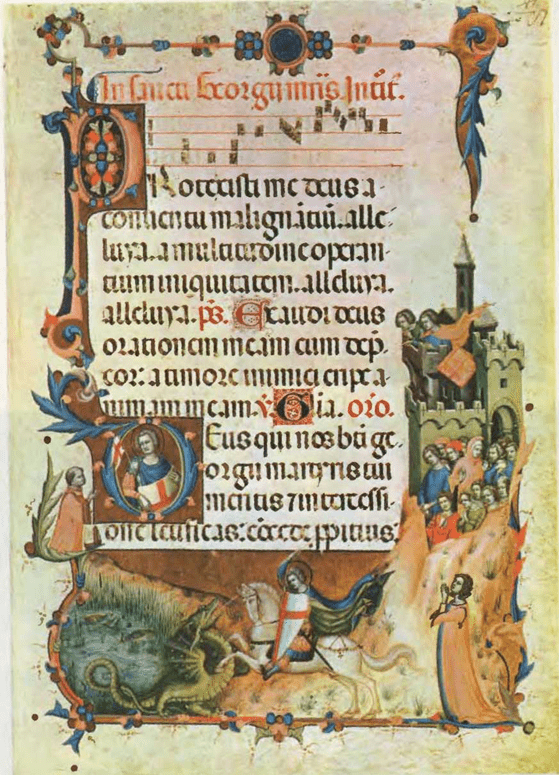 In sancti Georgii mris Introit.
Protexisti me deus a
conuentu malignātiū. alle-
luya. a multitudine operan-
tium iniquitatem. alleluya.
alleluya. ps. Exaudi deus
orationem meam cum dep̄-
cor: a timore inimici eripe a-
nimam meam. v. Gla. orō.
Deus qui nos bti ge-
orgii martyris tui
meritis ⁊ intercessi-
one letificas: cōcede ꝓpitius: